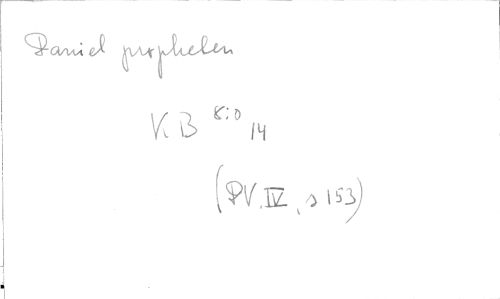 Daniel propheten
KB 8:o 14
(PV. IV, s 153)